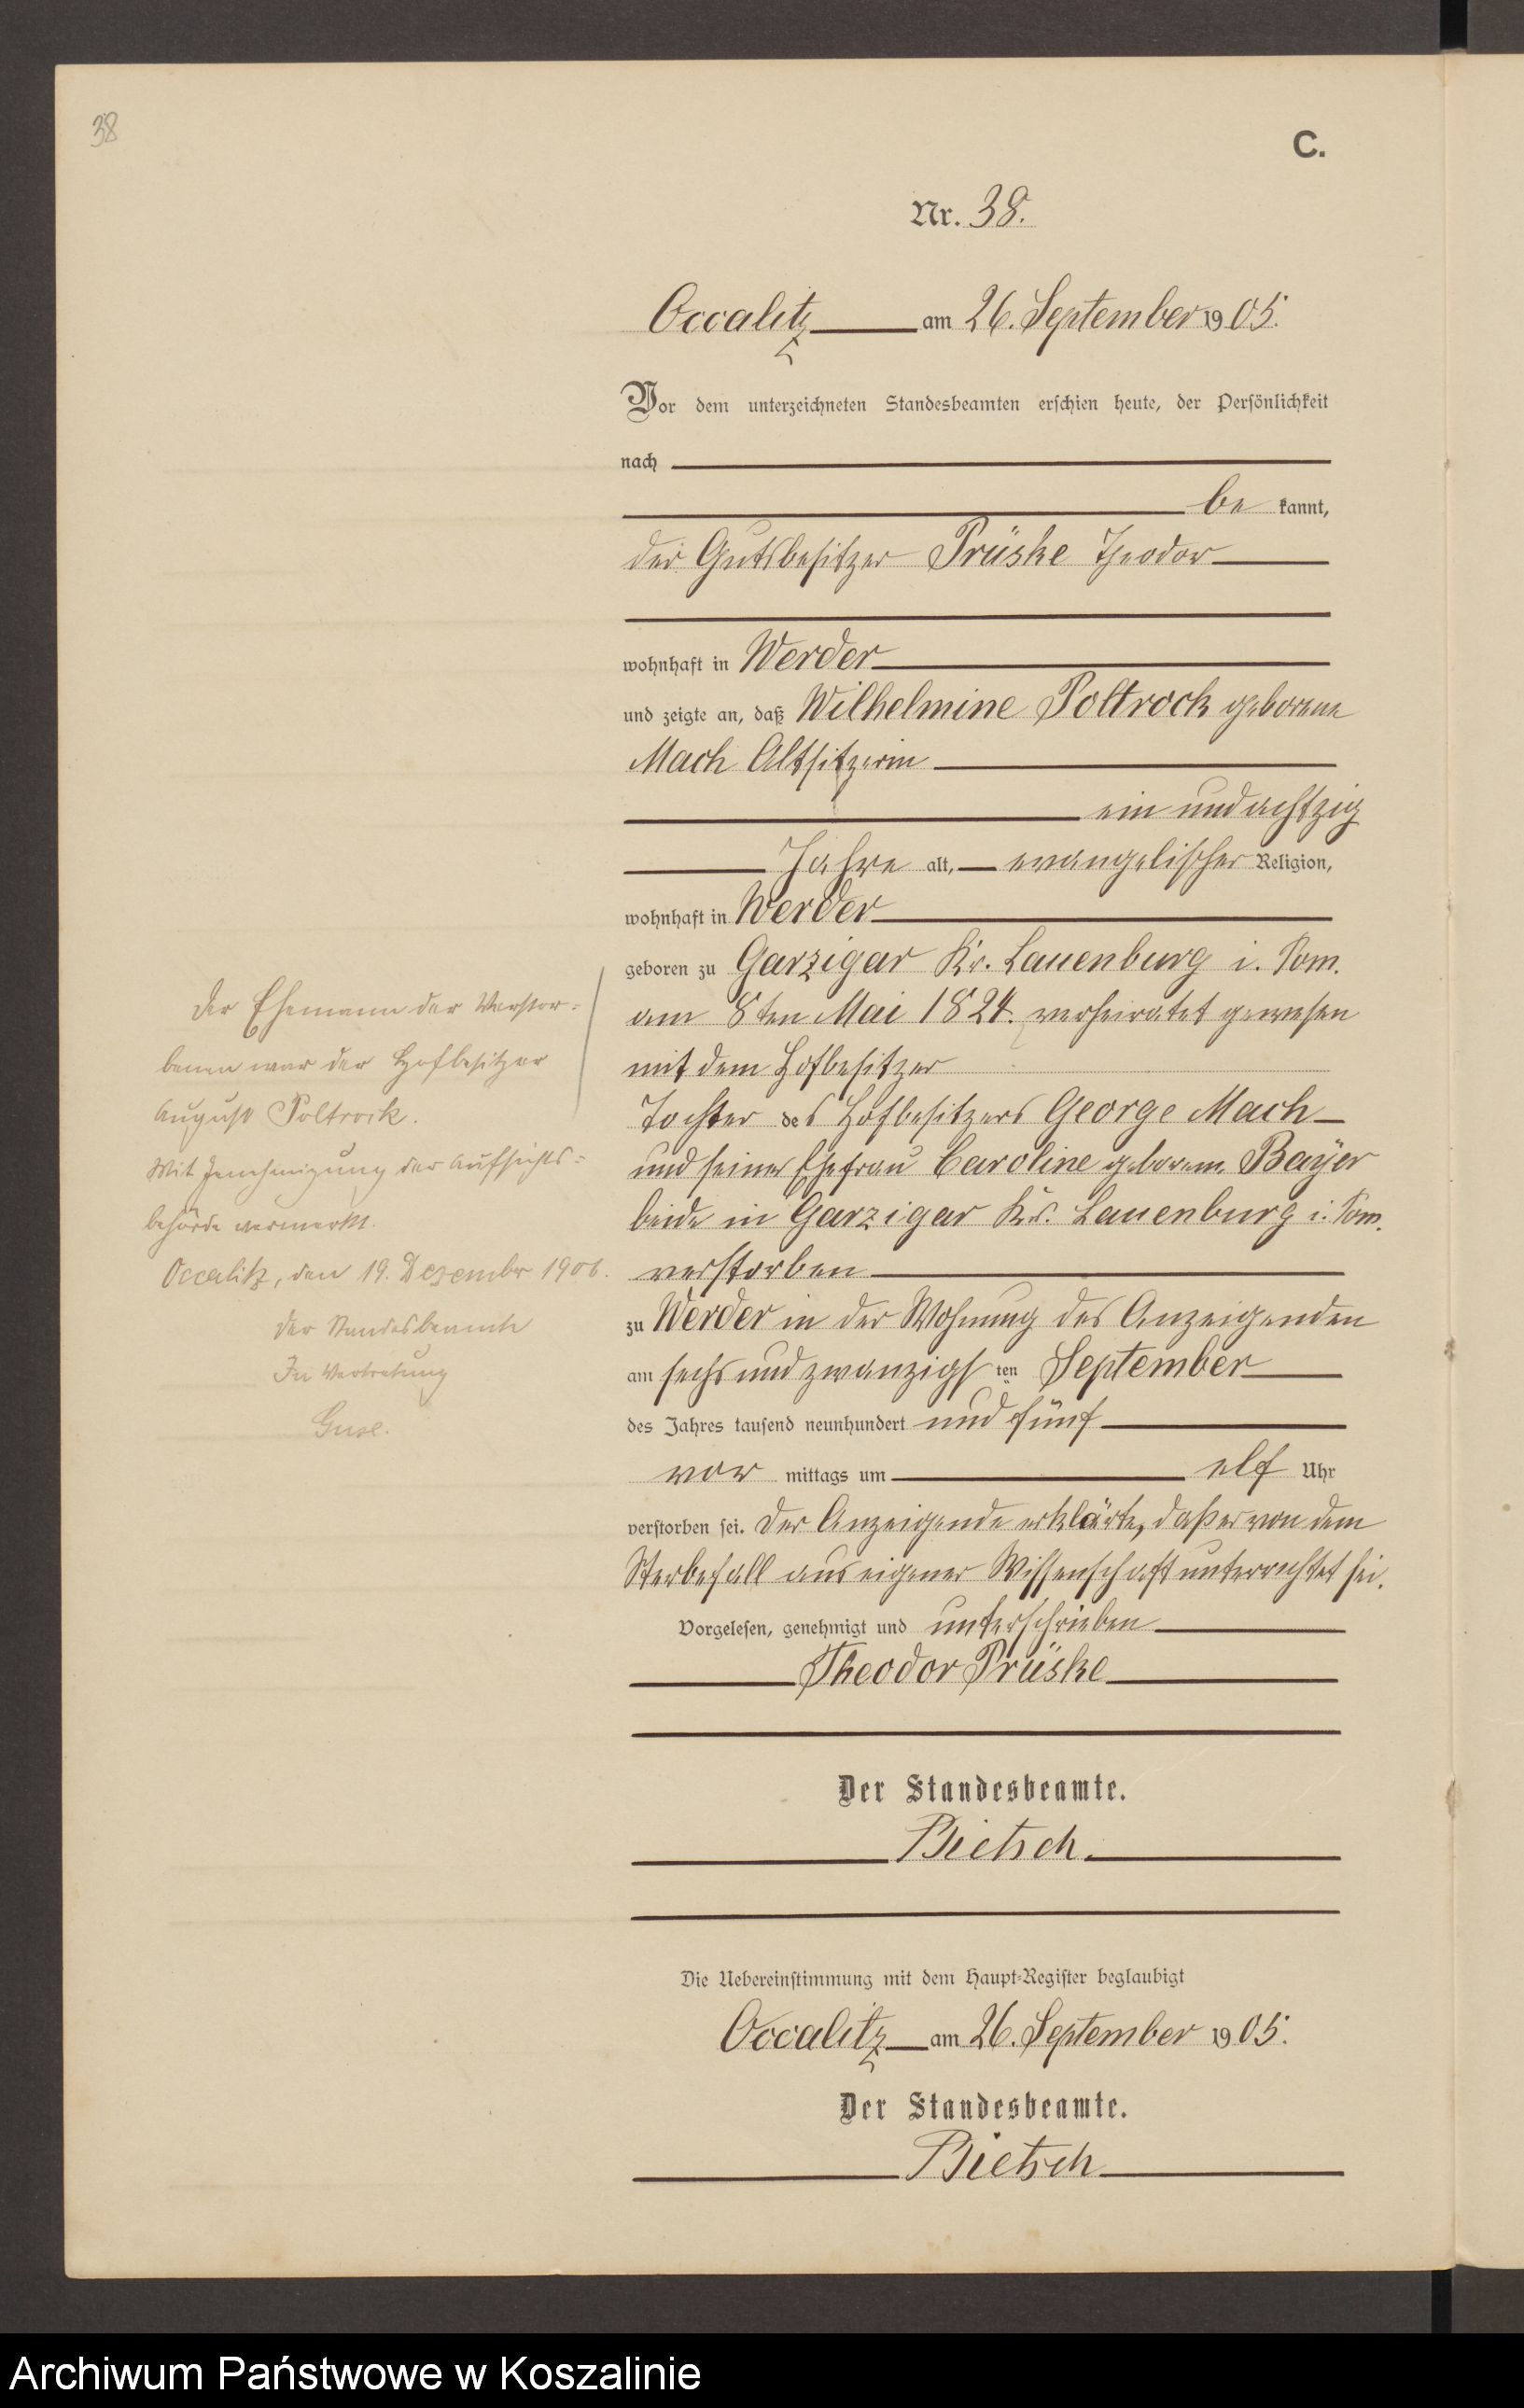 38
C.
Nr. 38.
Occalitz am 26. September 1905.
Vor dem unterzeichneten Standesbeamten erschien heute, der Persönlichkeit
nach
be kannt,
der Gutsbesitzer Prüske Theodor
wohnhaft in Werder
und zeigte an, daß Wilhelmine Poltrock geborene
Mach Altsitzerin
ein und achtzig
Jahre alt, evangelischer Religion,
wohnhaft in Werder
geboren zu Garzigar Kr. Lauenburg i. Pom.
am 8ten Mai 1824. verheiratet gewesen
mit dem Hofbesitzer
Tochter des Hofbesitzers George Mach
und seiner Ehefrau Caroline geborene Bayer
beide in Garzigar Kr. Lauenburg i. Pom.
verstorben
zu Werder in der Wohnung des Anzeigenden
am sechs und zwanzigsten September
des Jahres tausend neunhundert und fünf
vor mittags um elf Uhr
verstorben sei. Der Anzeigende erklärte, daß er von dem
Sterbefall aus eigener Wissenschaft unterrichtet sei.
Vorgelesen, genehmigt und unterschrieben
Theodor Prüske
Der Standesbeamte.
Bietsch
Die Uebereinstimmung mit dem Haupt-Register beglaubigt
Occalitz am 26. September 1905.
Der Standesbeamte.
Bietsch
Der Ehemann der Verstor-
benen war der Hofbesitzer
August Poltrock.
Mit Genehmigung der Aufsichts-
behörde vermerkt.
Occalitz, den 19. Dezember 1906.
Der Standesbeamte
In Vertretung
Guse.
Archiwum Państwowe w Koszalinie